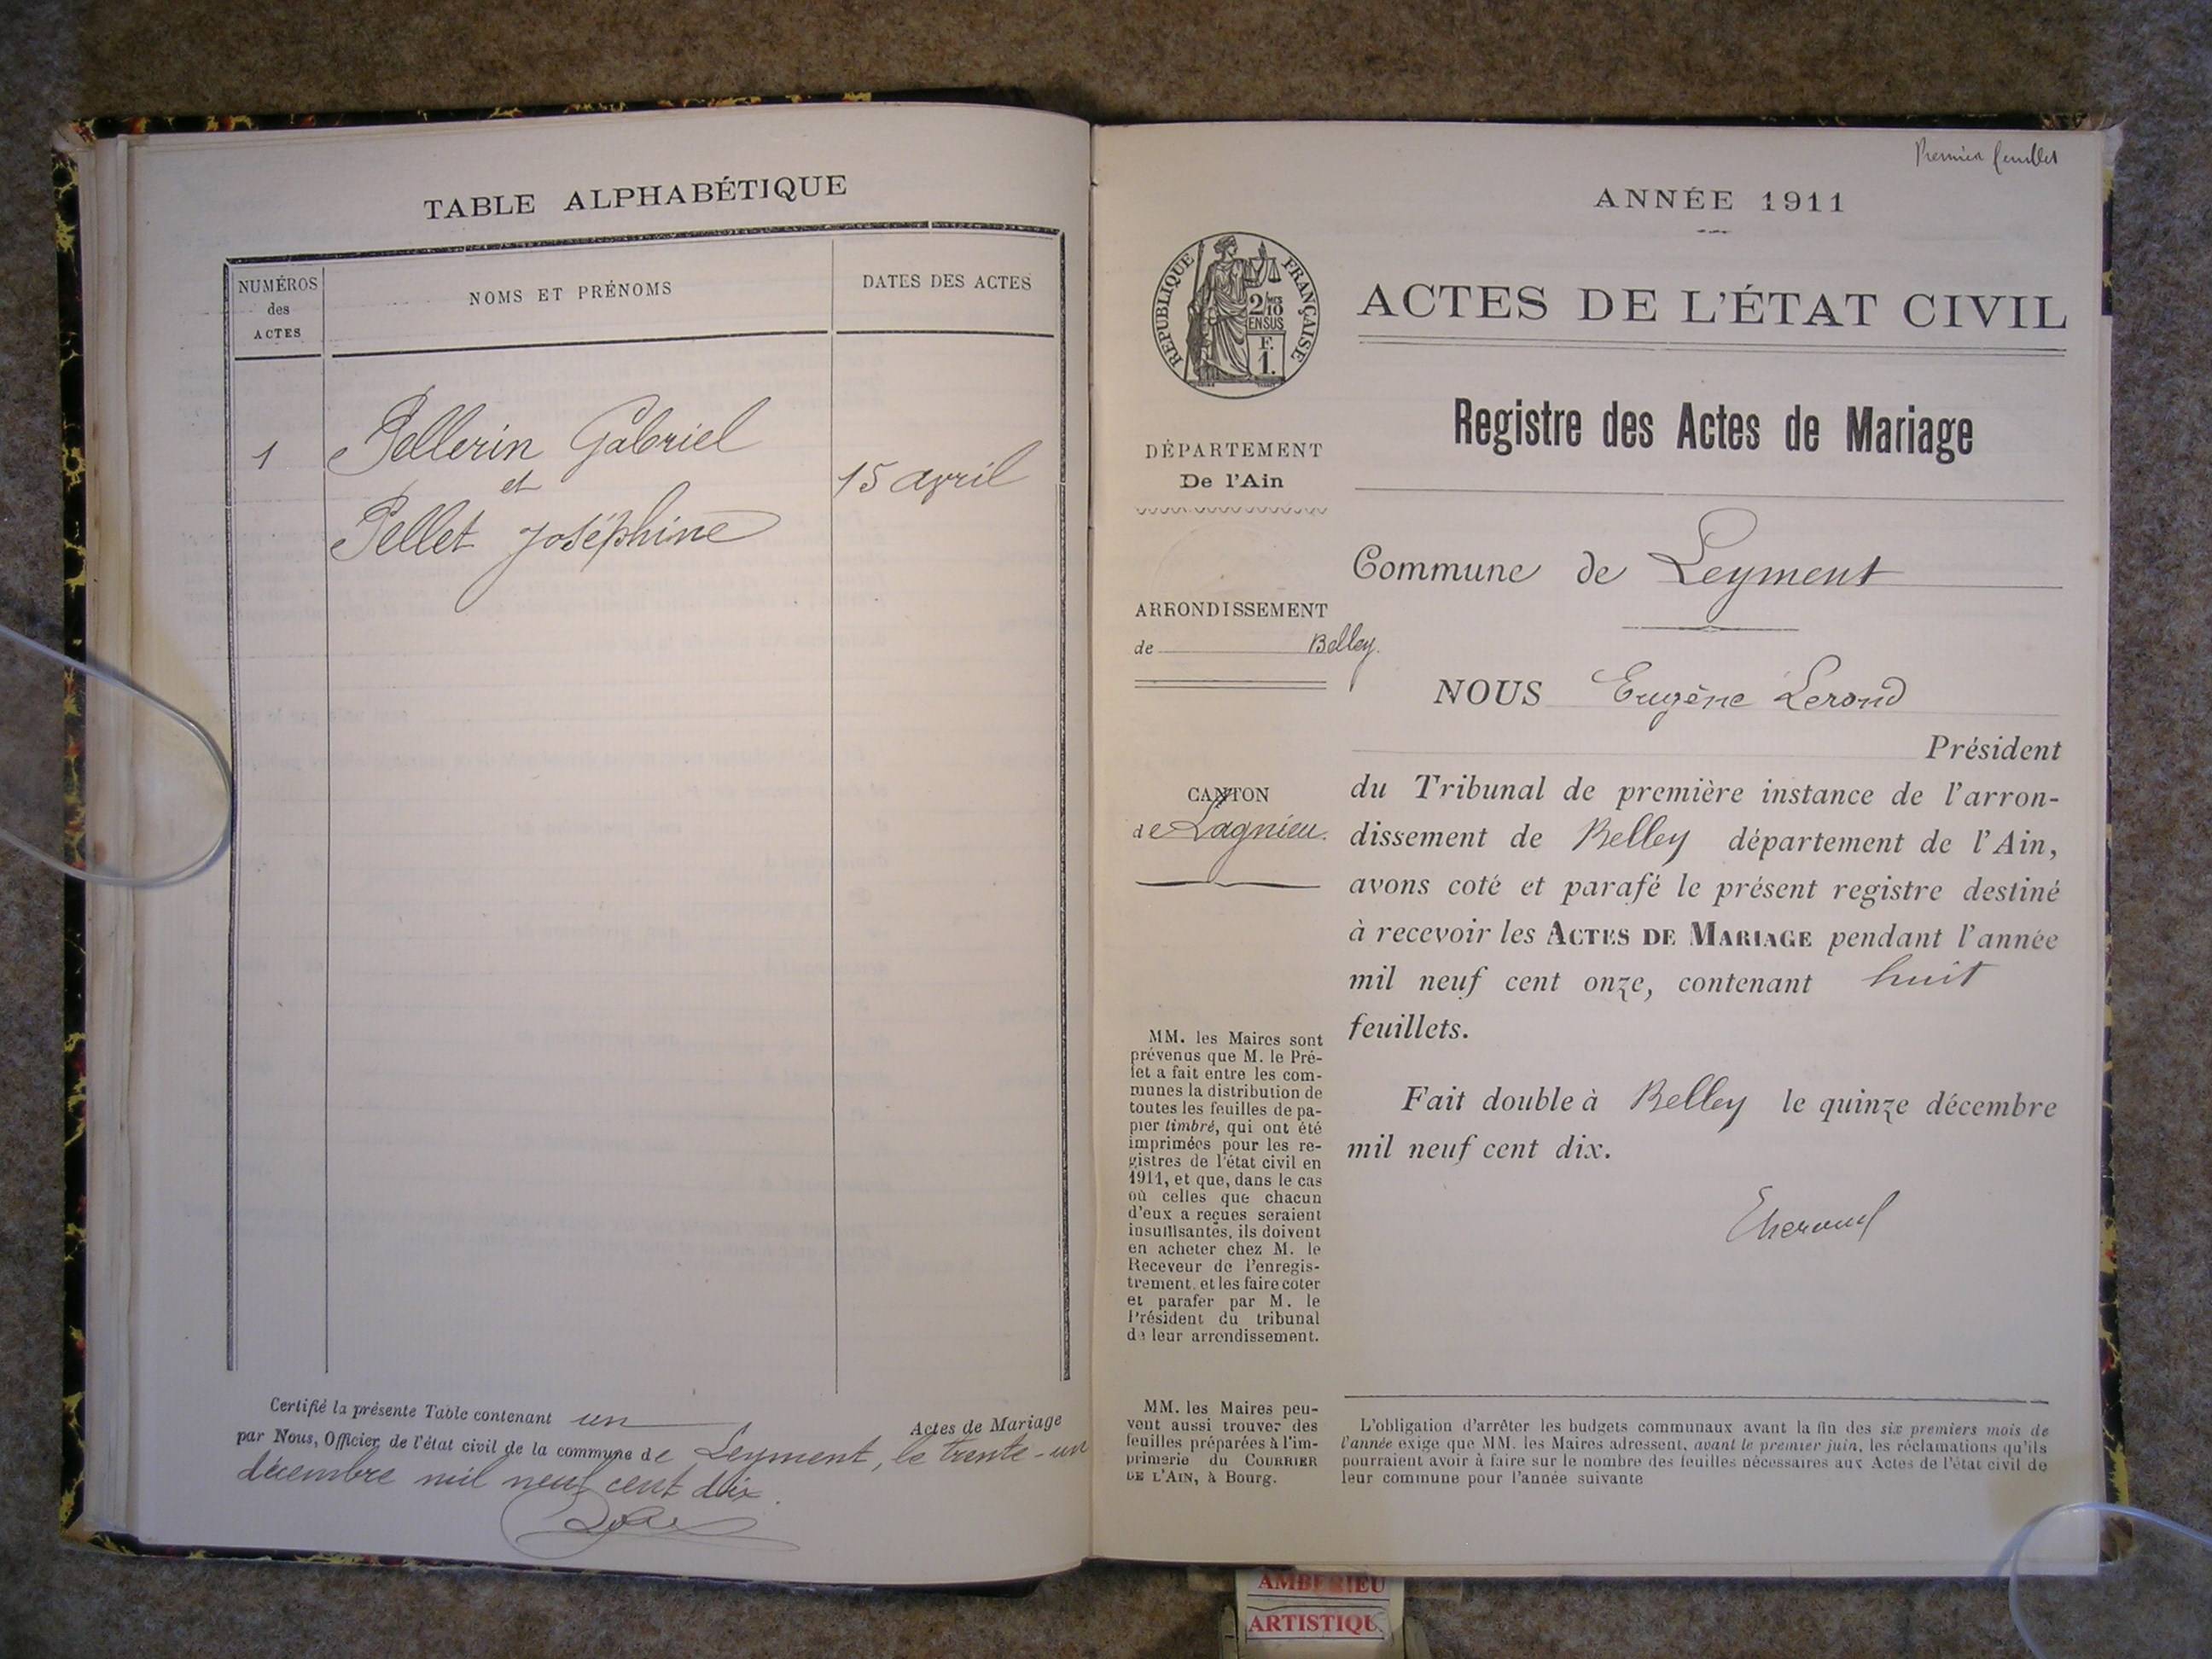 TABLE ALPHABÉTIQUE
NUMÉROS
des
ACTES
NOMS ET PRÉNOMS
DATES DES ACTES
1
Pellerin Gabriel
et
Pellet Joséphine
15 avril
Certifié la présente Table contenant un Actes de Mariage
par Nous, Officier de l'état civil de la commune de Leyment, le trente-un
décembre mil neuf cent dix.
Premier feuillet
ANNÉE 1911
RÉPUBLIQUE FRANÇAISE
2/10
EN SUS
F.
1.
ACTES DE L'ÉTAT CIVIL
Registre des Actes de Mariage
DÉPARTEMENT
De l'Ain
ARRONDISSEMENT
de Belley.
CANTON
de Lagnieu.
MM. les Maires sont
prévenus que M. le Pré-
fet a fait entre les com-
munes la distribution de
toutes les feuilles de pa-
pier timbré, qui ont été
imprimées pour les re-
gistres de l'état civil en
1911, et que, dans le cas
où celles que chacun
d'eux a reçues seraient
insuffisantes, ils doivent
en acheter chez M. le
Receveur de l'enregis-
trement, et les faire coter
et parafer par M. le
Président du tribunal
de leur arrondissement.
MM. les Maires peu-
vent aussi trouver des
feuilles préparées à l'im-
primerie du COURRIER
DE L'AIN, à Bourg.
Commune de Leyment
NOUS Eugène Lerond
Président
du Tribunal de première instance de l'arron-
dissement de Belley département de l'Ain,
avons coté et parafé le présent registre destiné
à recevoir les ACTES DE MARIAGE pendant l'année
mil neuf cent onze, contenant huit
feuillets.
Fait double à Belley le quinze décembre
mil neuf cent dix.
L'obligation d'arrêter les budgets communaux avant la fin des six premiers mois de
l'année exige que MM. les Maires adressent, avant le premier juin, les réclamations qu'ils
pourraient avoir à faire sur le nombre des feuilles nécessaires aux Actes de l'état civil de
leur commune pour l'année suivante
AMBERIEU
ARTISTIQU